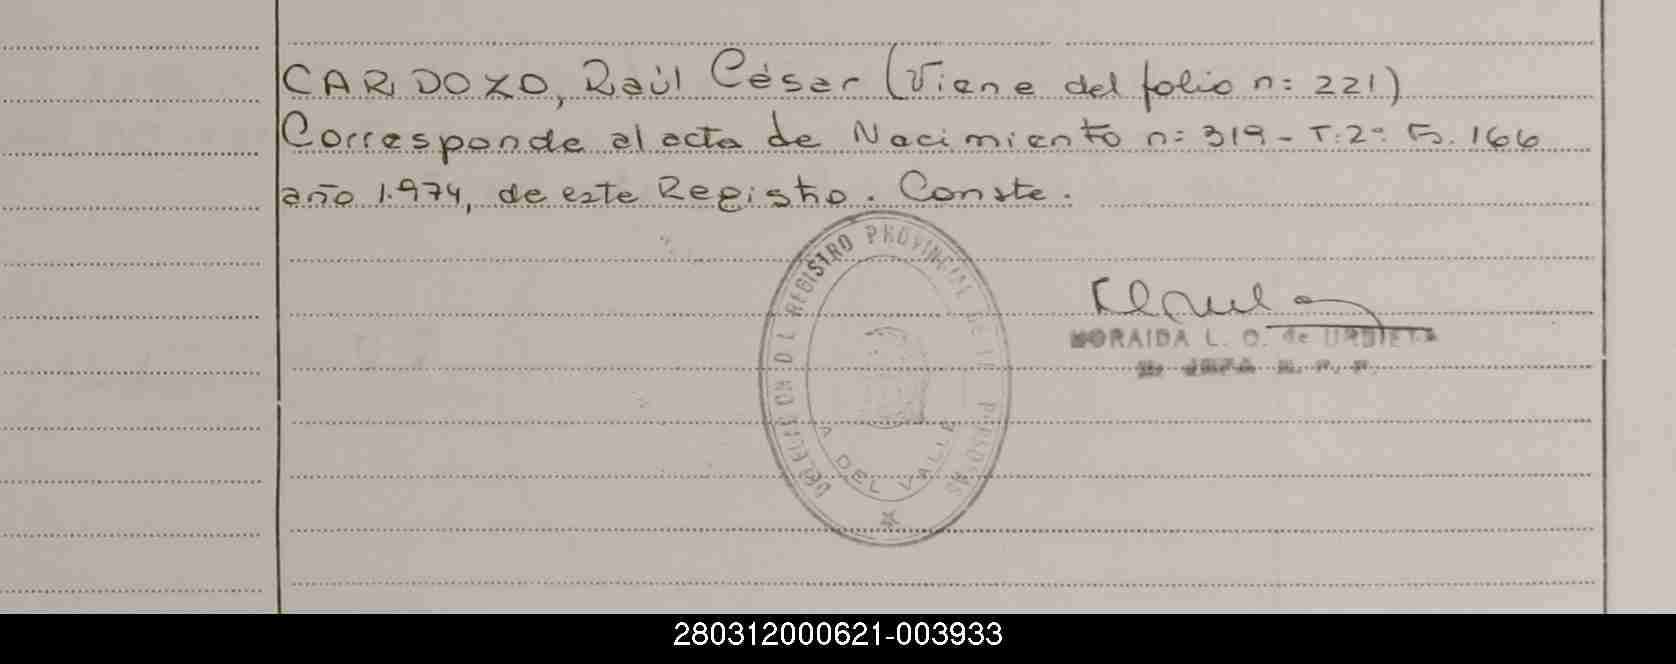 CARDOZO, Raúl César (Viene del folio n: 221)
Corresponde al acta de Nacimiento n: 319 - T: 2º: Fº. 166
año 1.974, de este Registro. Conste.
REGISTRO PROVINCIAL DE
DEL VALLE
NORAIDA L. O. de URBIETA
280312000621-003933